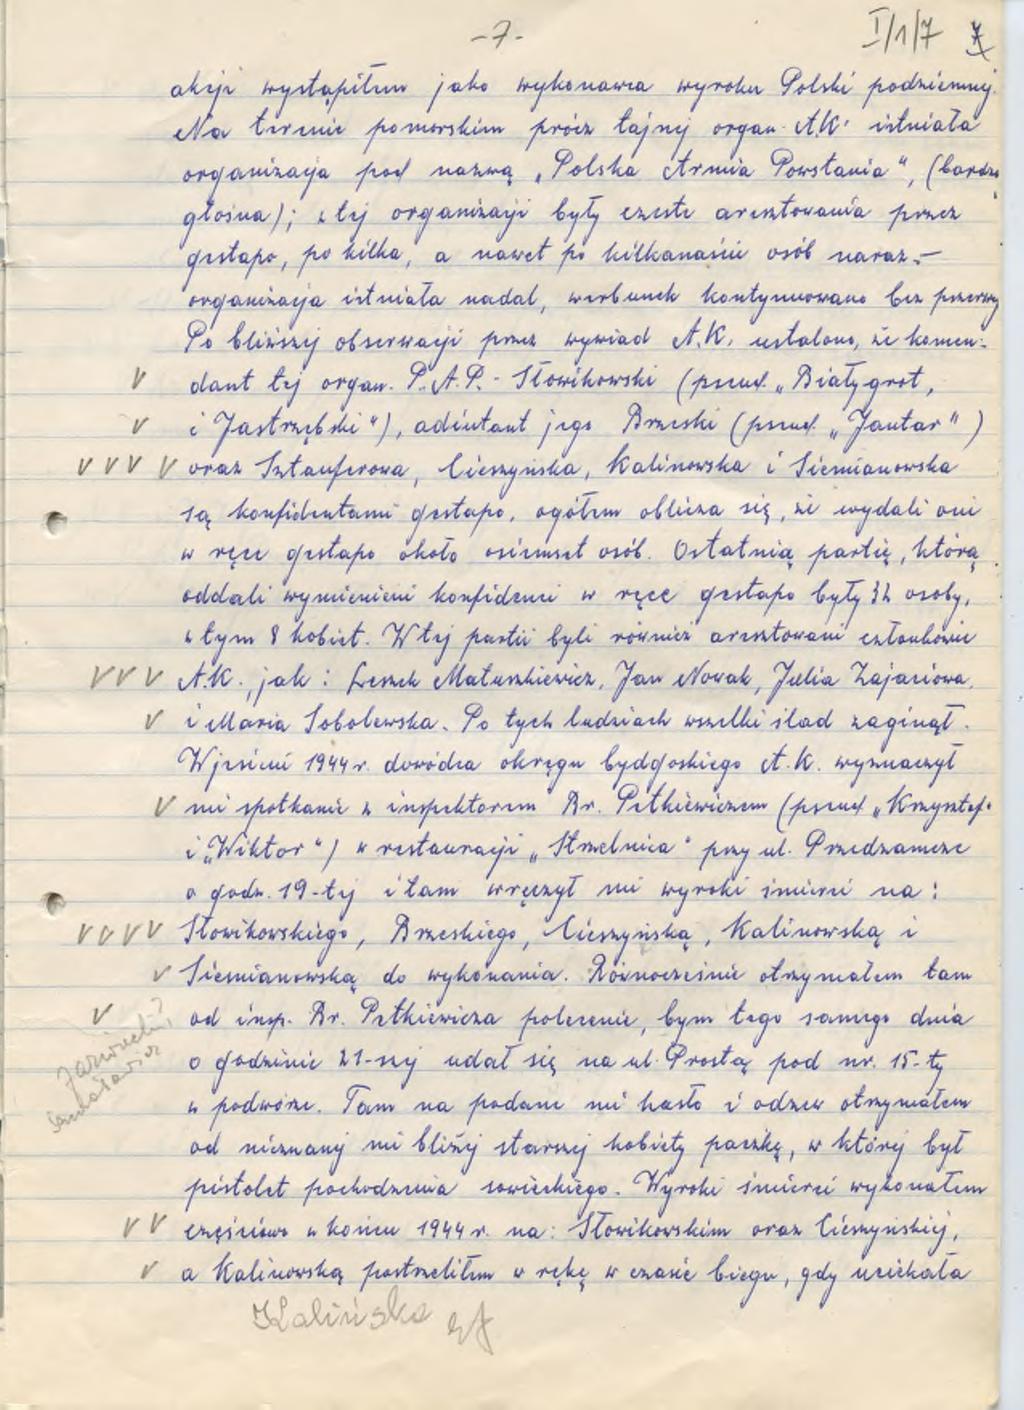 -7-
I/1/7
akcji wystąpiłem jako wykonawca wyroku Polski podziemnej.
Na terenie pomorskim prócz tajnej organ. A.K. istniała
organizacja pod nazwą „Polska Armia Powstania", (bardzo
głośna); z tej organizacji były częste aresztowania przez
gestapo, po kilka, a nawet po kilkanaście osób naraz, –
organizacja istniała nadal, werbunek kontynuowano bez przerwy
Po bliższej obserwacji przez wywiad A.K. ustalono, że komen-
dant tej organ. P.A.P. - Słowikowski (pseud. „Biały grot,
i Jastrzębski"), adiutant jego Brzeski (pseud. „Jantar")
oraz Sztauferowa, Cieszyńska, Kalinowska i Siemianowska
są konfidentami gestapo, ogółem oblicza się, że wydali oni
w ręce gestapo około osiemset osób. Ostatnią partię, którą
oddali wymienieni konfidenci w ręce gestapo były 32 osoby,
w tym 8 kobiet. W tej partii byli również aresztowani członkowie
A.K., jak: Leszek Matuszkiewicz, Jan Nowak, Julia Zającowa,
i Maria Sobolewska. Po tych ludziach wszelki ślad zaginął.
W jesieni 1944 r. dowódca okręgu bydgoskiego A.K. wyznaczył
mi spotkanie z inspektorem Br. Petkiewiczem (pseud. „Krzysztof"
i „Wiktor") w restauracji „Strzelnica" przy ul. Przedzamcze
o godz. 19-tej i tam wręczył mi wyroki śmierci na:
Słowikowskiego, Brzeskiego, Cieszyńską, Kalinowską i
Siemianowską do wykonania. Równocześnie otrzymałem tam
od insp. Br. Petkiewicza polecenie, bym tego samego dnia
o godzinie 21-szej udał się na ul. Prostą pod nr. 15-ty
w podwórze. Tam na podane mi hasło i odzew otrzymałem
od nieznanej mi bliżej starszej kobiety paczkę, w której był
pistolet pochodzenia sowieckiego. Wyroki śmierci wykonałem
częściowo w końcu 1944 r. na: Słowikowskim oraz Cieszyńskiej,
a Kalinowską postrzeliłem w rękę w czasie biegu, gdy uciekała
Kalińska